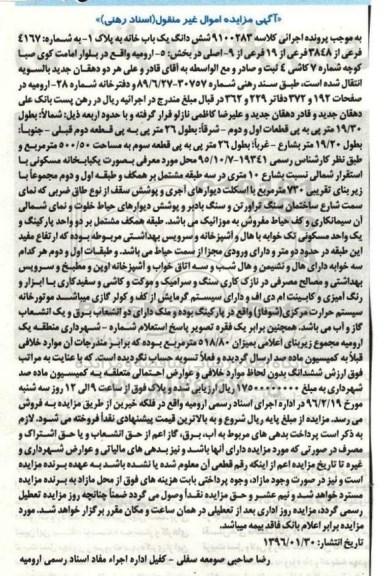 «آگهی مزایده اموال غیر منقول(اسناد رهنی)»
به موجب پرونده اجرائی کلاسه ۹۱۰۰۲۸۳ شش دانگ یک باب خانه به پلاک ۱- به شماره: ۴۱۶۷
فرعی از ۳۸۴۸ فرعی از ۱۹ فرعی از ۹- اصلی در بخش: ۵- ارومیه واقع در بلوار امامت کوی صبا
کوچه شماره ۷ کاشی ۴ ثبت و صادر و مع الواسطه به آقای قادر و علی هر دو دهقان جدید بالسویه
انتقال شده است، طبق سند رهنی شماره ۳۰۷۵۷-۸۹/۶/۲۷ و دفترخانه شماره ۲۸- ارومیه در
صفحات ۱۹۲ و ۳۷۲ دفاتر ۲۲۹ و ۳۶۲ در قبال مبلغ مندرج در اجرائیه ریال در رهن پست بانک علی
دهقان جدید و قادر دهقان جدید و علیرضا کاظمی نازلو قرار گرفته و با حدود اربعه ذیل: شمالاً: بطول
۱۹/۳۰ متر پی به پی قطعات اول و دوم – شرقاً: بطول ۲۶ متر پی به پی قطعه دوم قبلی – جنوباً:
بطول ۱۹/۲۰ متر بشارع – غرباً: بطول ۲۶ متر پی به پی قطعه سوم به مساحت ۵۰۰/۵۰ مترمربع و
طبق نظر کارشناس رسمی ۱۹۳۴۱-۹۵/۱۰/۷ محل مورد معرفی بصورت یکبابخانه مسکونی با
استقرار شمالی نسبت بشارع ۱۰ متری در سه طبقه مشتمل بر همکف و طبقه اول و دوم مجموعاً با
زیر بنای تقریبی ۷۳۰ مترمربع با اسکلت دیوارهای آجری و پوشش سقف از نوع طاق ضربی که نمای
سمت شارع ساختمان سنگ تراورتن و سنگ بادبر و پوشش دیوارهای حیاط خلوت و نمای شمالی
آن سیمانکاری و کف حیاط مفروش به موزائیک می باشد. طبقه همکف مشتمل بر دو واحد پارکینگ و
یک واحد مسکونی تک خوابه با هال و آشپزخانه و سرویس بهداشتی مربوطه بوده که ارتفاع مفید
این طبقه در حدود دو متر و دارای ورودی مجزا از سمت حیاط می باشد. و طبقات اول و دوم هر کدام
سه خوابه دارای هال و نشیمن و هال شب و سه اتاق خواب و آشپزخانه اوپن و مطبخ و سرویس
بهداشتی و مصالح مصرفی در نازک کاری سنگ و سرامیک و موکت و کاشی و سفیدکاری با ابزار و
رنگ آمیزی و کابینت ام دی اف و دارای سیستم گرمایش از کف و کولر گازی میباشند موتورخانه
سیستم حرارت مرکزی(شوفاژ) واقع در پارکینگ بوده و ملک دارای دو انشعاب برق و یک انشعاب
گاز و آب می باشد. همچنین برابر یک فقره تصویر پاسخ استعلام شماره – شهرداری منطقه یک
ارومیه مجموع زیربنای اعلامی بمیزان ۵۱۸/۸۰ مترمربع بوده که برابر مندرجات آن موارد خلافی
قبلاً به کمیسیون ماده صد ارسال گردیده و فعلاً تسویه حساب نگردیده است. که با عنایت به مراتب
فوق ارزش ششدانگ بدون لحاظ موارد خلافی و عوارض احتمالی متعلقه به کمیسیون ماده صد
شهرداری به مبلغ ۱۷۵۰۰۰۰۰۰۰۰ ریال ارزیابی شده و پلاک فوق از ساعت ۹ الی ۱۲ روز سه شنبه
مورخ ۹۶/۲/۱۹ در اداره اجرای اسناد رسمی ارومیه واقع در فلکه خیرین از طریق مزایده به فروش
می رسد. مزایده از مبلغ پایه ریال شروع و به بالاترین قیمت پیشنهادی نقداً فروخته می شود. لازم
به ذکر است پرداخت بدهی های مربوط به آب، برق، گاز اعم از حق انشعاب و یا حق اشتراک و
مصرف در صورتی که مورد مزایده دارای آنها باشد و نیز بدهی های مالیاتی و عوارض شهرداری و
غیره تا تاریخ مزایده اعم از اینکه رقم قطعی آن معلوم شده یا نشده باشد به عهده برنده مزایده
است و نیز در صورت وجود مازاد، وجوه پرداختی بابت هزینه های فوق از محل مازاد به برنده مزایده
مسترد خواهد شد و نیم عشر و حق مزایده نقداً وصول می گردد ضمناً چنانچه روز مزایده تعطیل
رسمی گردد، مزایده روز اداری بعد از تعطیلی در همان ساعت و مکان مقرر برگزار خواهد شد. مورد
مزایده برابر اعلام بانک فاقد بیمه میباشد.
تاریخ انتشار: ۱۳۹۶/۰۱/۳۰
رضا صاحبی صومعه سفلی – کفیل اداره اجراء مفاد اسناد رسمی ارومیه